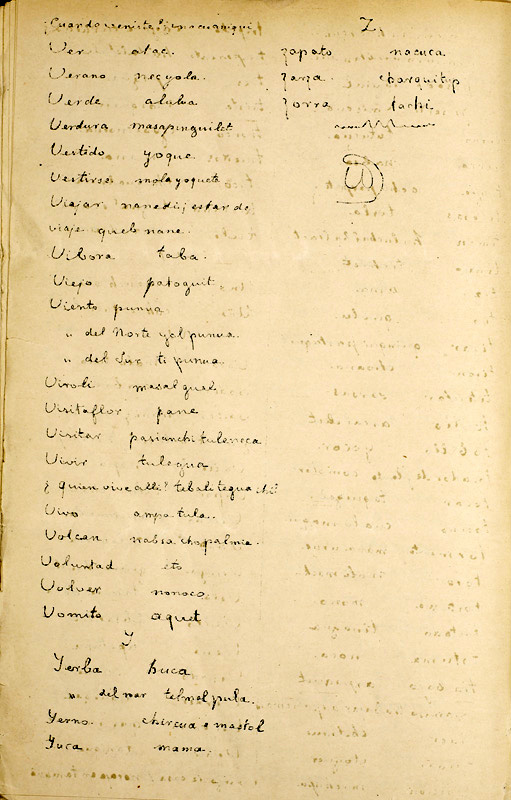 Ver atac.
Verano necyola.
Verde aluba
Verdura masapinguilet
Vestido yoque
Vestirse molayoquete
Viajar nanedi; estar de
viaje queb nane.
Vibora taba.
Viejo patoguit
Viento punua
" del Norte yal punua.
" del Sur ti punua.
Viroli masalguel
Visitaflor pane
Visitar pasianchituleneca
Vivir tulegua
¿Quien vive alli? tebalitegua
Vivo ampatula..
Volcan nabsa chopalmia.
Voluntad eto
Volver nonoco
Vomito aquet
Y
Yerba huca
" del mar telmalpula.
Yerno. chircua e mastol
Yuca mama.
Z.
Zapato nacuca.
Zarza charquitip
Zorra tachi